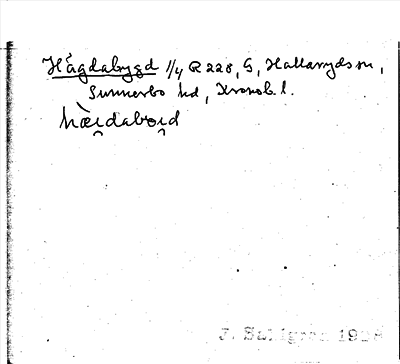 Hågdabygd 1/4 R 228, G, Hallaryds sn,
Sunnerbo hd, Kronob. l.
hæi̯daboi̯d
J. Sahlgren 19